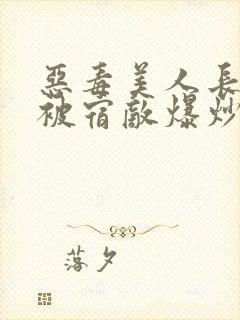 惡毒美人長
被宿敵爆炒
落夕